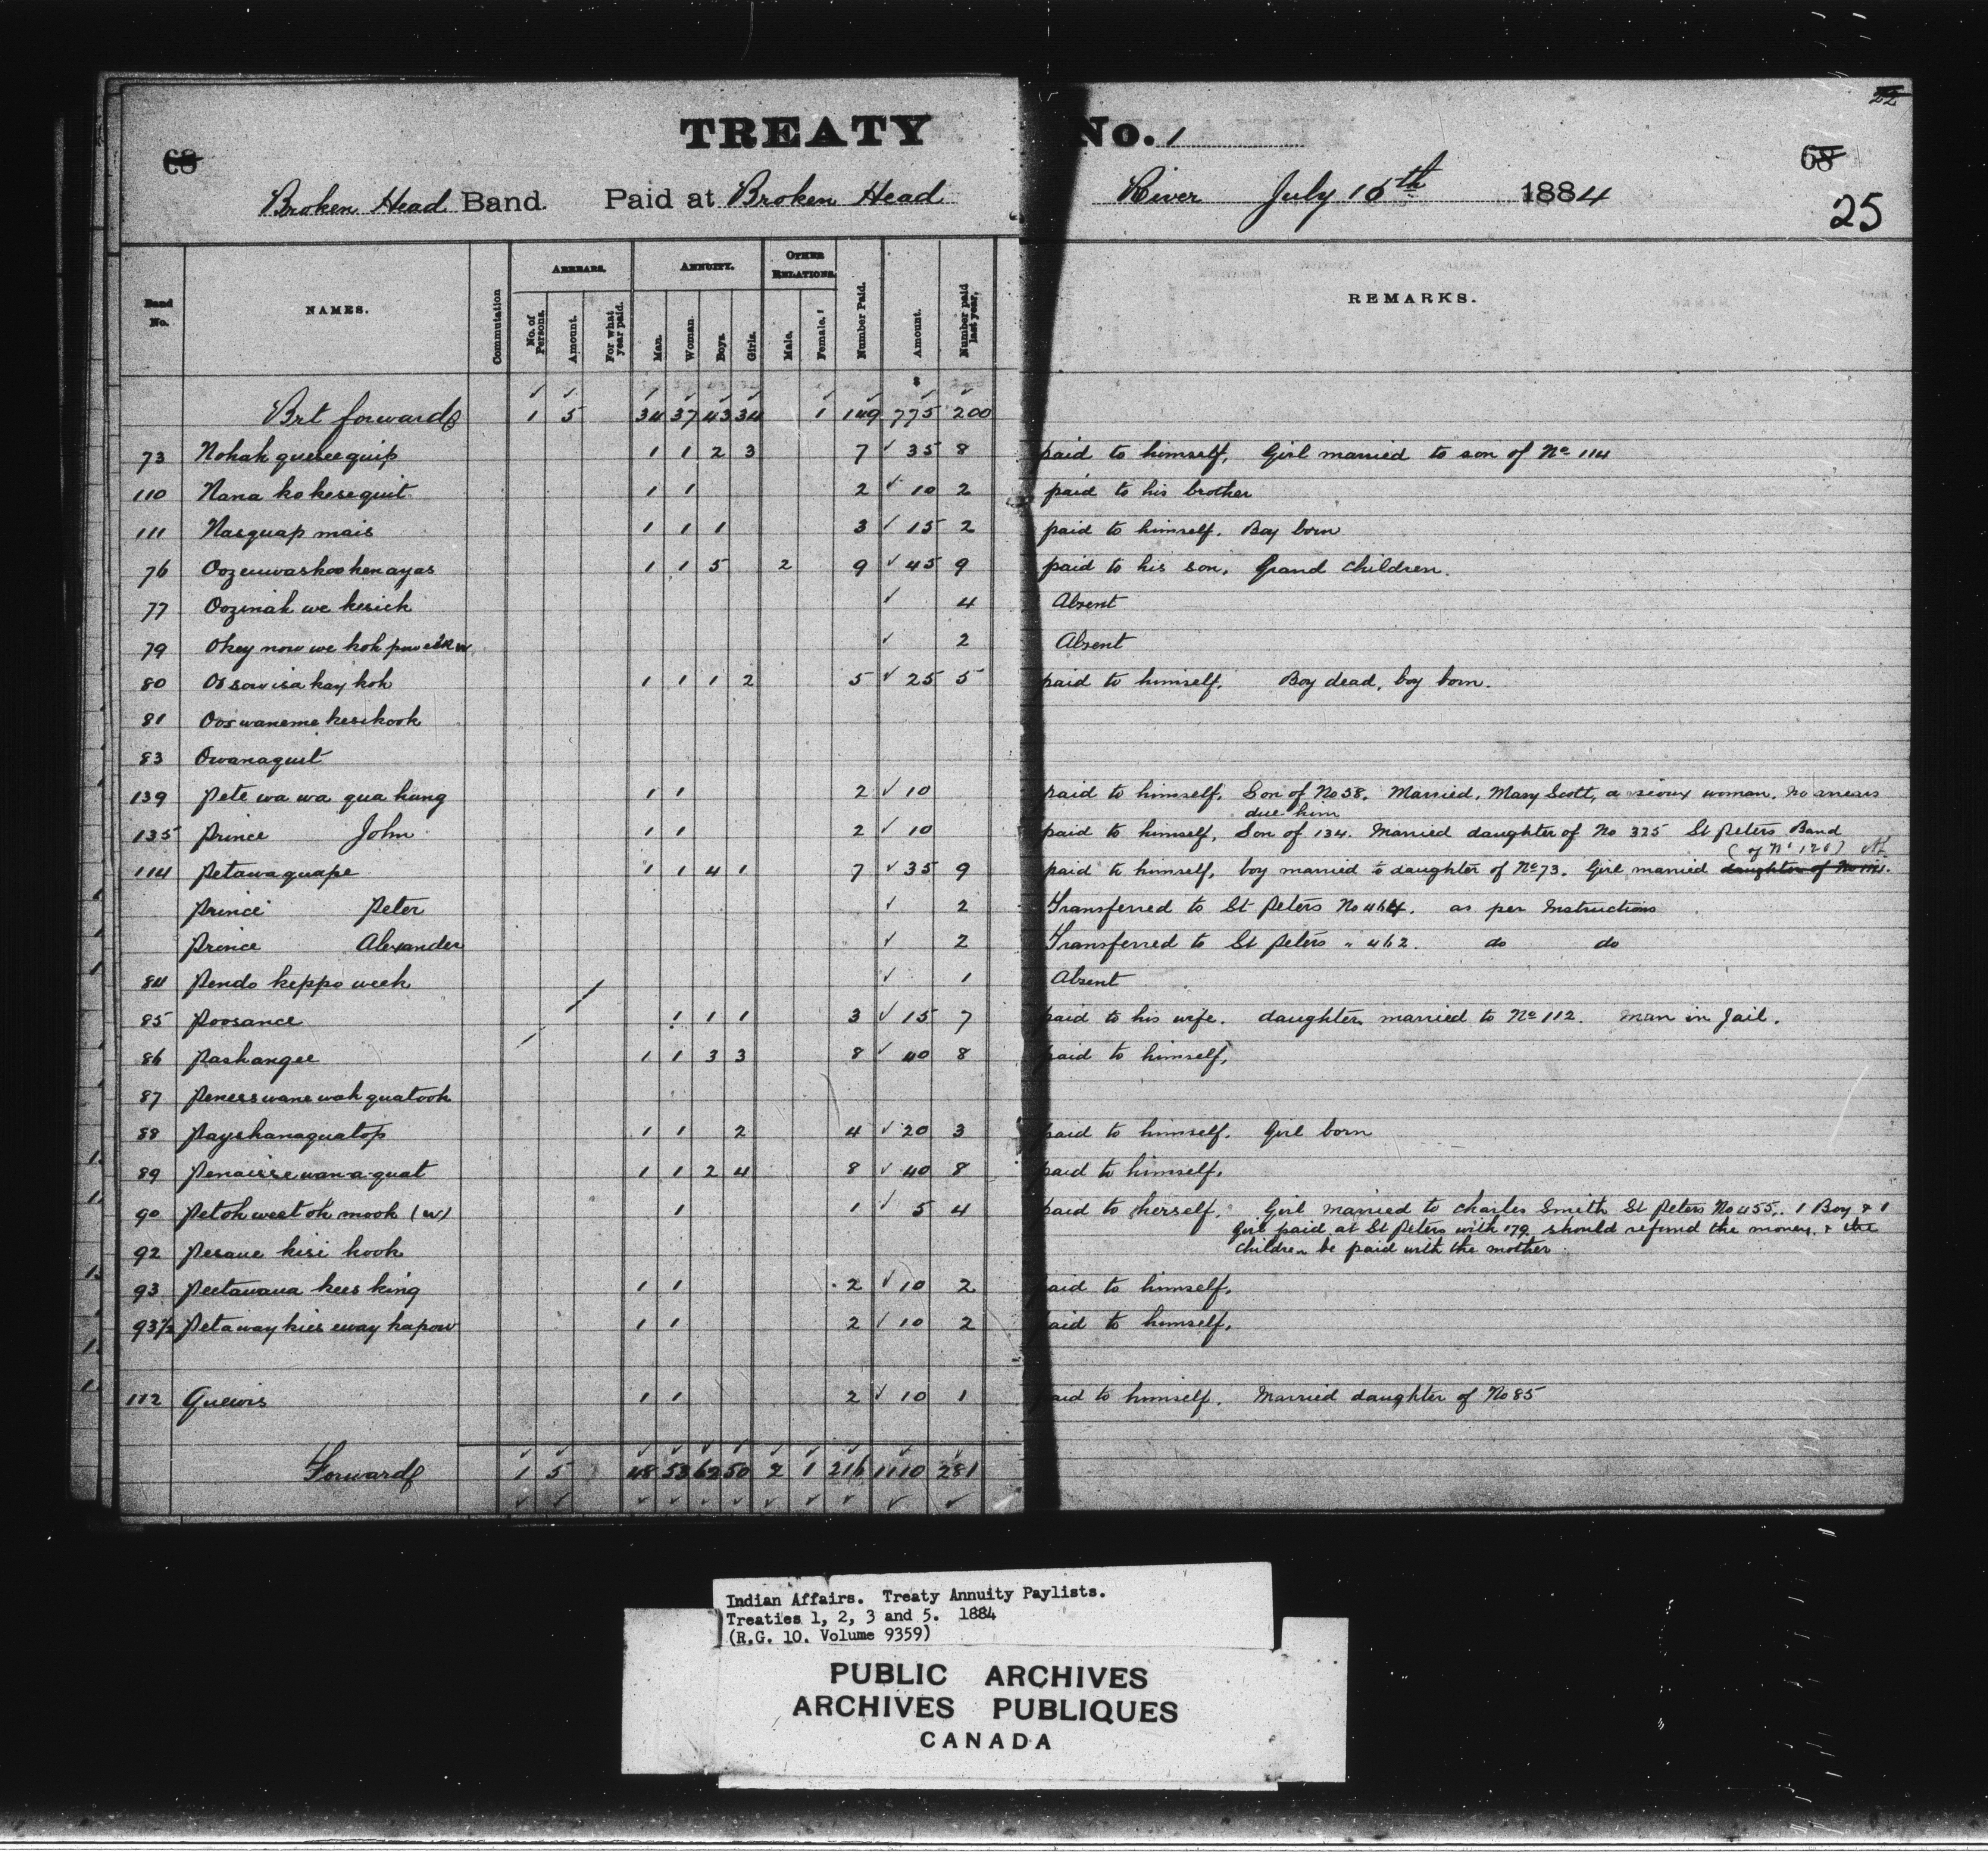 22
TREATY No. 1
68 68
25
Broken Head Band. Paid at Broken Head River July 16th 1884
Band No. NAMES. Commutation ARREARS. No. of Persons. Amount. For what year paid. ANNUITY. Man. Woman. Boys. Girls. OTHER RELATIONS. Male. Female. Number Paid. Amount. Number paid last year. REMARKS.
Brt forward 1 5 34 37 43 34 1 149 775 200
73 Nohak quesee quip 1 1 2 3 7 ✓ 35 8 paid to himself, Girl married to son of No 114
110 Nana ko kesequit 1 1 2 ✓ 10 2 paid to his brother
111 Nasquap mais 1 1 1 3 ✓ 15 2 paid to himself. Boy born
76 Oozeuwaskoo kenayas 1 1 5 2 9 ✓ 45 9 paid to his son, Grand children.
77 Oozinah we kesick ✓ 4 Absent
79 Okey now we koh ✓ 2 Absent
80 Ossowisa kay koh 1 1 1 2 5 ✓ 25 5 paid to himself. Boy dead, boy born.
81 Ooswaneme kesikook
83 Owanaquit
139 Pete wa wa qua kung 1 1 2 ✓ 10 paid to himself. Son of No 58. Married, Mary Scott, a sioux woman. no arrears
due him
135 Prince John 1 1 2 ✓ 10 paid to himself, Son of 134. Married daughter of No 325 St Peters Band
(of No 120)
114 Petawaquape 1 1 4 1 7 ✓ 35 9 paid to himself, boy married to daughter of No 73. Girl married daughter of No
Prince Peter ✓ 2 Transferred to St Peters No 464. as per Instructions
Prince Alexander ✓ 2 Transferred to St Peters " 462. do do
84 Pendo keppo week ✓ 1 Absent
85 Poosance 1 1 1 3 ✓ 15 7 paid to his wife. daughter married to No 112. Man in Jail.
86 Pashangee 1 1 3 3 8 ✓ 40 8 paid to himself,
87 Penesswane wah quatook
88 Payshanaquatop 1 1 2 4 ✓ 20 3 paid to himself. Girl born
89 Penaisse wan-a-quat 1 1 2 4 8 ✓ 40 8 paid to himself.
90 Petoh weet oh mook (w) 1 1 ✓ 5 4 paid to herself. Girl married to Charles Smith St Peters No 455. 1 Boy & 1
Girl paid at St Peters with 179 should refund the money, & the
92 Pesaue kisi kook children be paid with the mother.
93 Peetawana kees king 1 1 2 ✓ 10 2 paid to himself.
93½ Petaway kies eway kapow 1 1 2 ✓ 10 2 paid to himself.
112 Quewis 1 1 2 ✓ 10 1 paid to himself. Married daughter of No 85
Forward 1 5 48 53 62 50 2 1 216 1110 281
Indian Affairs. Treaty Annuity Paylists.
Treaties 1, 2, 3 and 5. 1884
(R.G. 10. Volume 9359)
PUBLIC ARCHIVES
ARCHIVES PUBLIQUES
CANADA